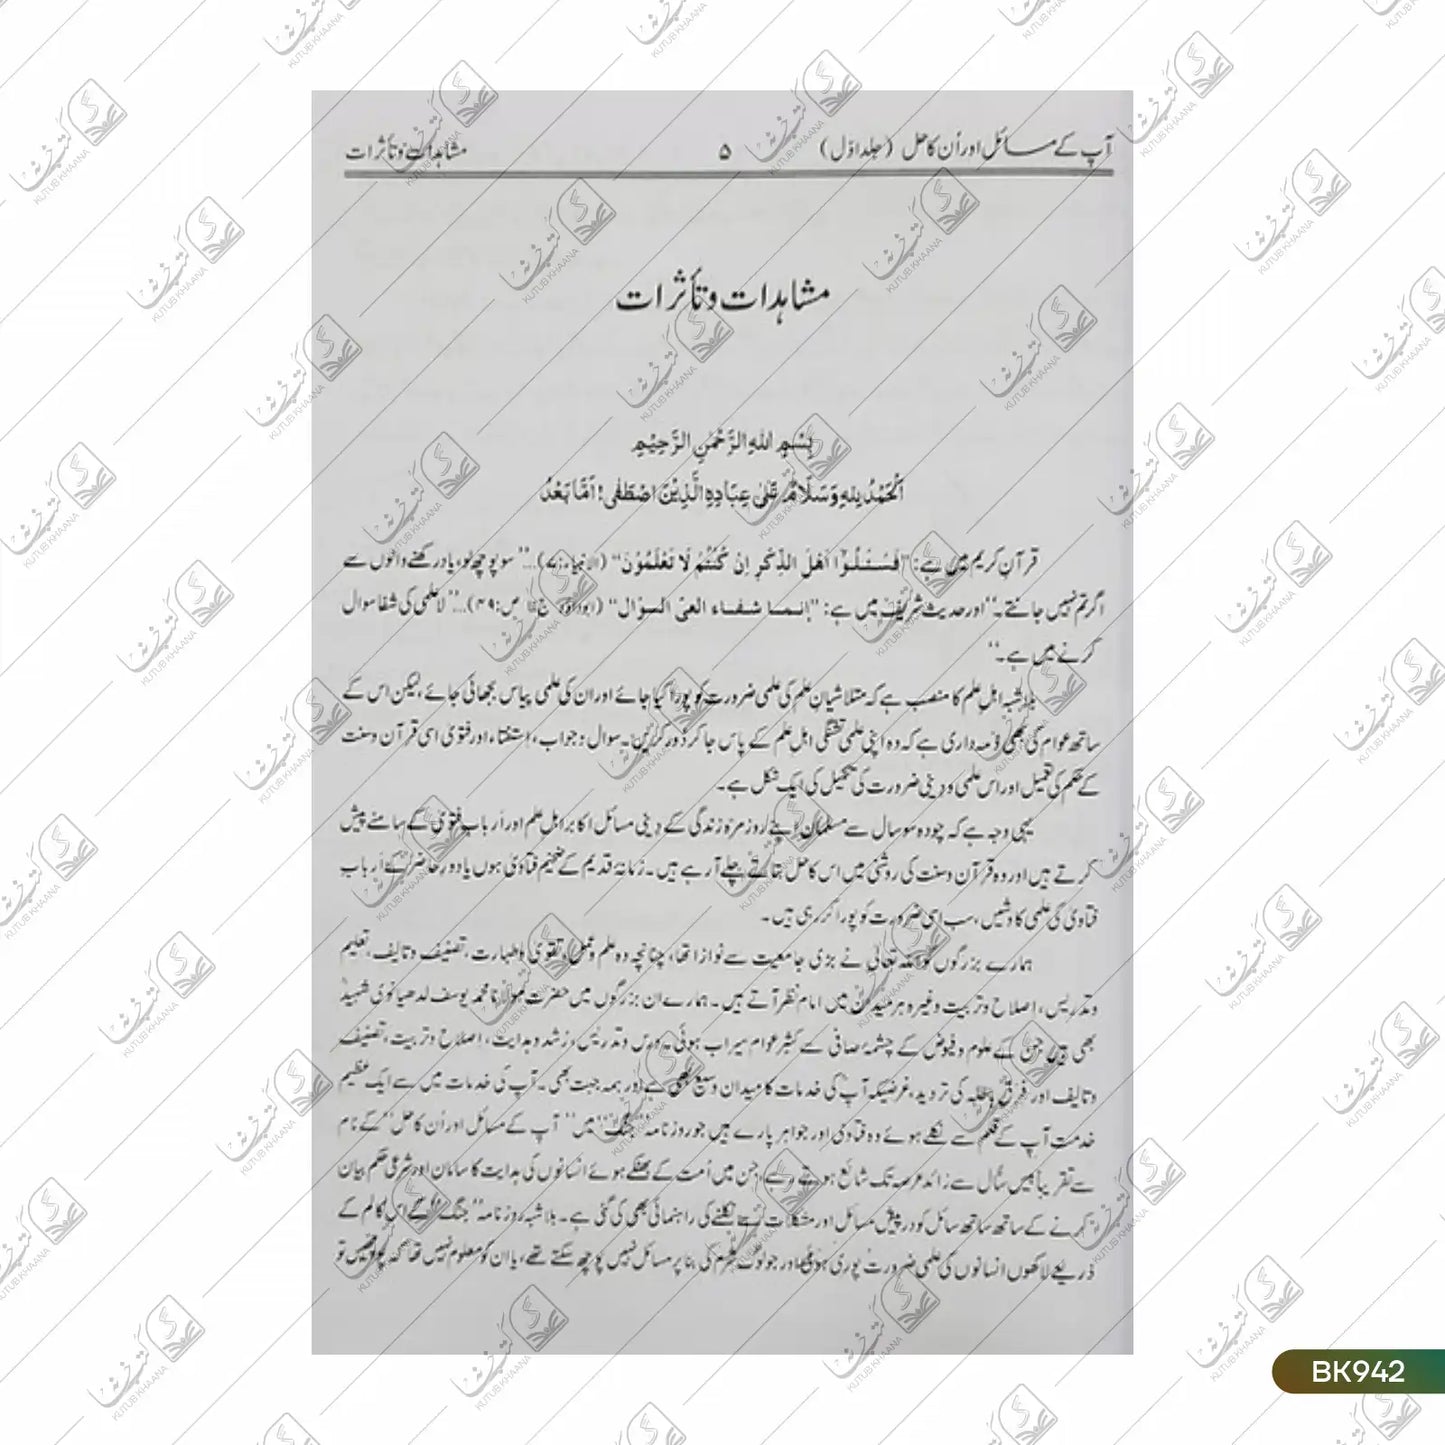 آپ کے مسائل اور اُن کا حل (جلد اوّل) ۵ مشاہدات و تأثرات
مشاہدات و تأثرات
بِسْمِ اللهِ الرَّحْمٰنِ الرَّحِيْمِ
اَلْحَمْدُ لِلهِ وَسَلَامٌ عَلٰى عِبَادِهِ الَّذِيْنَ اصْطَفٰى! اَمَّا بَعْدُ
قرآنِ کریم میں ہے: "فَسْئَلُوْٓا اَهْلَ الذِّكْرِ اِنْ كُنْتُمْ لَا تَعْلَمُوْنَ" (الانبیاء:۷)...'' سو پوچھ لو، یاد رکھنے والوں سے
اگر تم نہیں جانتے۔'' اور حدیث شریف میں ہے: "إنما شفاء العیّ السؤال" (ابوداؤد ج: ص:۴۹)...'' لاعلمی کی شفا سوال
کرنے میں ہے۔''
بلاشبہ اہلِ علم کا منصب ہے کہ متلاشیانِ علم کی علمی ضرورت کو پورا کیا جائے اور ان کی علمی پیاس بجھائی جائے، لیکن اس کے
ساتھ عوام کی بھی ذمہ داری ہے کہ وہ اپنی علمی تشنگی اہلِ علم کے پاس جا کر دُور کریں۔ سوال : جواب، اِستفتاء اور فتویٰ اسی قرآن و سنت
کے حکم کی تعمیل اور اس علمی و دینی ضرورت کی تکمیل کی ایک شکل ہے۔
یہی وجہ ہے کہ چودہ سو سال سے مسلمان اپنے روزمرّہ زندگی کے دینی مسائل اکابر اہلِ علم اور اَربابِ فتویٰ کے سامنے پیش
کرتے ہیں اور وہ قرآن و سنت کی روشنی میں اس کا حل بتاتے چلے آ رہے ہیں۔ زمانۂ قدیم کے ضخیم فتاویٰ ہوں یا دورِ حاضر کے اَرباب
فتاویٰ کی علمی کاوشیں، سب اسی ضرورت کو پورا کر رہی ہیں۔
ہمارے بزرگوں کو اللہ تعالیٰ نے بڑی جامعیت سے نوازا تھا، چنانچہ وہ علم و عمل، تقویٰ و طہارت، تصنیف و تالیف، تعلیم
و تدریس، اصلاح و تربیت وغیرہ ہر میدان میں امام نظر آتے ہیں۔ ہمارے ان بزرگوں میں حضرت مولانا محمد یوسف لدھیانوی شہیدؒ
بھی ہیں جن کے علوم و فیوض کے چشمۂ صافی سے کثیر عوام سیراب ہوئی۔ درس و تدریس، رُشد و ہدایت، اِصلاح و تربیت، تصنیف
و تالیف اور فِرقِ باطلہ کی تردید، غرضیکہ آپ کی خدمات کا میدان وسیع بھی ہے اور ہمہ جہت بھی۔ آپ کی خدمات میں سے ایک عظیم
خدمت آپ کے قلم سے نکلے ہوئے وہ فتاویٰ اور جواہر پارے ہیں جو روزنامہ ''جنگ'' میں '' آپ کے مسائل اور اُن کا حل'' کے نام
سے تقریباً بیس سال سے زائد عرصہ تک شائع ہوتے رہے، جن میں اُمت کے بھٹکے ہوئے انسانوں کی ہدایت کا سامان اور شرعی حکم بیان
کرنے کے ساتھ ساتھ سائل کو درپیش مسائل اور مشکلات سے نکلنے کی راہنمائی بھی کی گئی ہے۔ بلاشبہ روزنامہ ''جنگ'' کے اس کالم کے
ذریعے لاکھوں انسانوں کی علمی ضرورت پوری ہوئی اور جو لوگ شرم کی بنا پر مسائل نہیں پوچھ سکتے تھے، یا ان کو معلوم نہیں تھا کہ پوچھیں تو
BK942